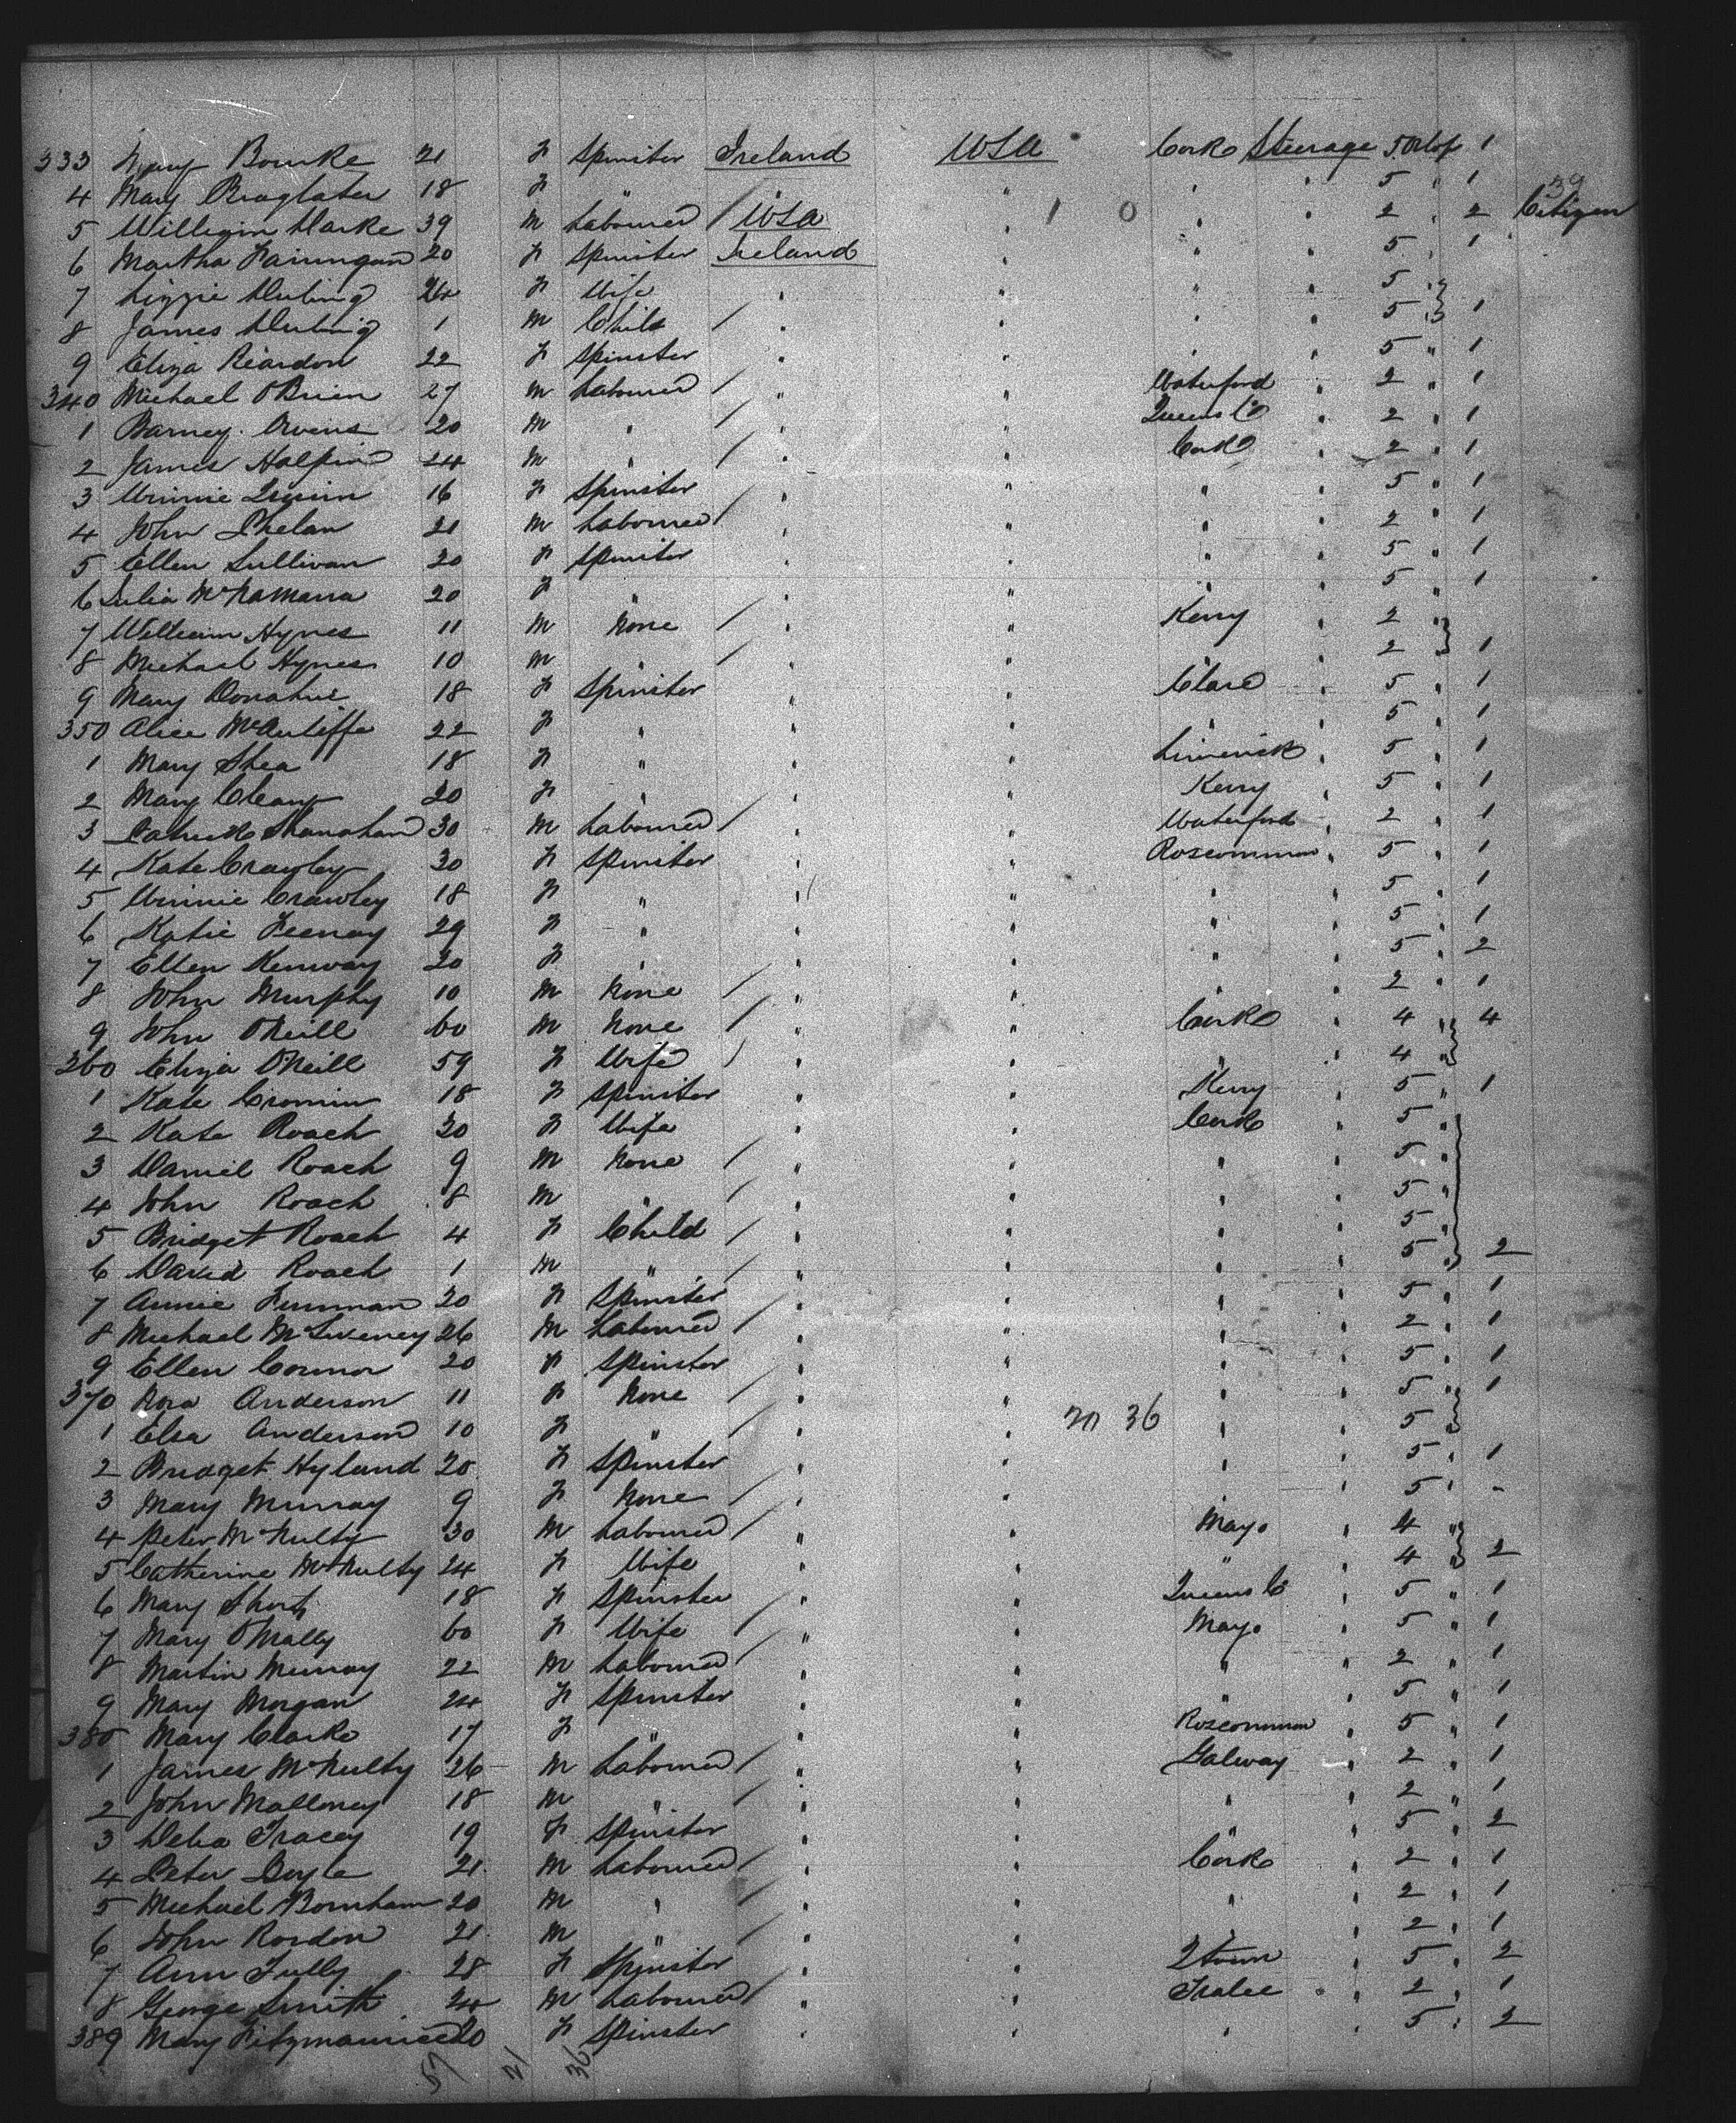 333 Mary Bourke 21 F Spinster Ireland USA Cork Steerage 5 Orlop 1
4 Mary 18 F " " " " 5 " 1
39
5 William Clarke 39 M Labourer / USA " 1 0 " " 2 " 2 Citizen
6 Martha 20 F Spinster Ireland " " " 5 " 1
7 Lizzie 24 F Wife " " " " 5 "
8 James 1 M Child / " " " " 5 " 1
9 Eliza Reardon 22 F Spinster " " " " 5 " 1
340 Michael O'Brien 27 M Labourer / " " Waterford " 2 " 1
1 Barney Owens 20 M " / " " Queens Co " 2 " 1
2 James Halpin 24 M " / " " Cork " 2 " 1
3 Winnie Quinn 16 F Spinster " " " " 5 " 1
4 John Phelan 21 M Labourer / " " " " 2 " 1
5 Ellen Sullivan 20 F Spinster " " " " 5 " 1
6 Julia McNamara 20 F " " " " " 5 " 1
7 William Hynes 11 M None / " " Kerry " 2 "
8 Michael Hynes 10 M " / " " " " 2 " 1
9 Mary Donahue 18 F Spinster " " Clare " 5 " 1
350 Alice McAuliffe 22 F " " " " " 5 " 1
1 Mary Shea 18 F " " " Limerick " 5 " 1
2 Mary Cleary 20 F " " " Kerry " 5 " 1
3 Patrick Shanahan 30 M Labourer / " " Waterford " 2 " 1
4 Kate Crawley 30 F Spinster " " Roscommon " 5 " 1
5 Winnie Crawley 18 F " " " " " 5 " 1
6 Katie Feenay 29 F " " " " " 5 " 1
7 Ellen Kenway 20 F " " " " " 5 " 2
8 John Murphy 10 M None / " " " " 2 " 1
9 John O'Neill 60 M None / " " Cork " 4 " 4
360 Eliza O'Neill 59 F Wife / " " " " 4 "
1 Kate Cronin 18 F Spinster " " Kerry " 5 " 1
2 Kate Roach 30 F Wife " " Cork " 5 "
3 Daniel Roach 9 M None / " " " " 5 "
4 John Roach 8 M " / " " " " 5 "
5 Bridget Roach 4 F Child / " " " " 5 "
6 David Roach 1 M " / " " " " 5 " 2
7 Annie 20 F Spinster " " " " 5 " 1
8 Michael McSweeney 26 M Labourer / " " " " 2 " 1
9 Ellen Connor 20 F Spinster " " " " 5 " 1
370 Nora Anderson 11 F None / " " " " 5 " 1
1 Elsa Anderson 10 F " / " " 21 36 " " 5 "
2 Bridget Hyland 20 F Spinster " " " " 5 " 1
3 Mary Murray 9 F None / " " " " 5 " -
4 Peter McNulty 30 M Labourer / " " Mayo " 4 "
5 Catherine McNulty 24 F Wife " " " " 4 " 2
6 Mary Short 18 F Spinster " " Queens Co " 5 " 1
7 Mary O'Mally 60 F Wife / " " Mayo " 5 " 1
8 Martin Murray 22 M Labourer / " " " " 2 " 1
9 Mary Morgan 24 F Spinster " " " " 5 " 1
380 Mary Clarke 17 F " " " Roscommon " 5 " 1
1 James McNulty 26 M Labourer / " " Galway " 2 " 1
2 John Malloney 18 M " / " " " " 2 " 1
3 Delia Tracey 19 F Spinster " " " " 5 " 2
4 Peter Doyle 21 M Labourer / " " Cork " 2 " 1
5 Michael Bornham 20 M " / " " " " 2 " 1
6 John Rordon 21 M " / " " " " 2 " 1
7 Ann Tully 28 F Spinster " " Qtown " 5 " 2
8 George Smith 24 M Labourer / " " Tralee " 2 " 1
389 Mary Fitzmaurice 20 F Spinster " " " " 5 " 2
57 21 36